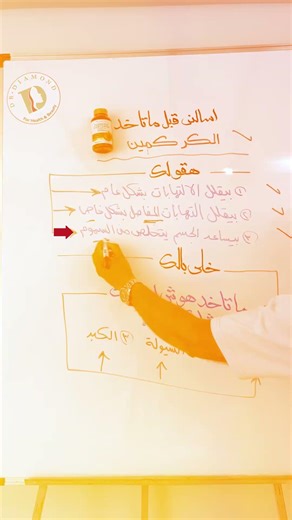 DR.DIAMOND
For Health & Beauty
اسألني قبل ما تاخد
الكركمين
هقولك
① بيقلل الالتهابات بشكل عام
② بيقلل التهابات المفاصل بشكل خاص
③ بيساعد الجسم يتخلص من السموم
خلى بالك
ما تاخدهوش
السيولة ③ الكبد